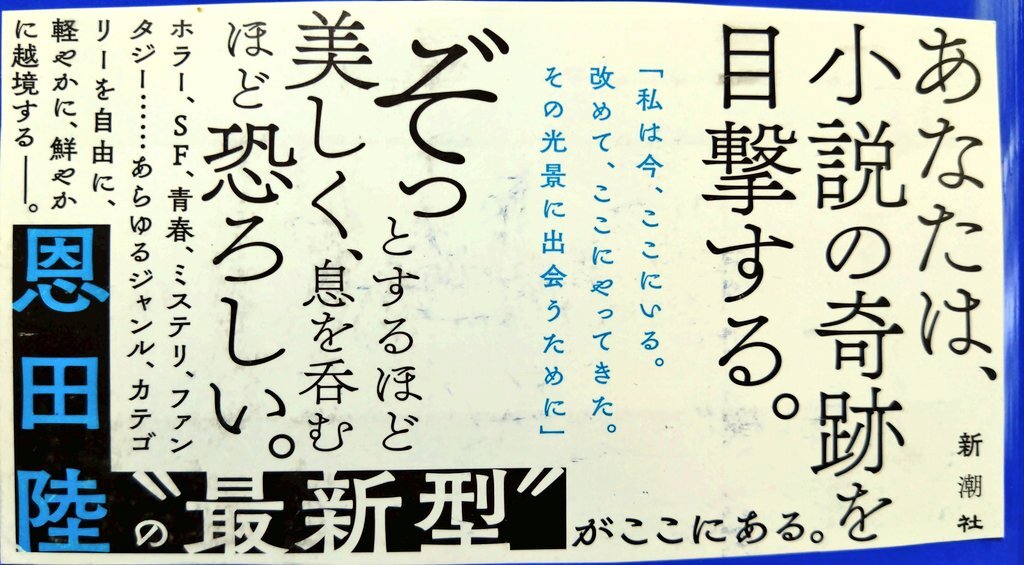 あなたは、
小説の奇跡を
目撃する。
「私は今、ここにいる。
改めて、ここにやってきた。
その光景に出会うために」
ぞっとするほど
美しく、息を呑む
ほど恐ろしい。
ホラー、SF、青春、ミステリ、ファン
タジー……あらゆるジャンル、カテゴ
リーを自由に、
軽やかに、鮮やか
に越境する――。
恩田陸
の〝最新型〟がここにある。
新潮社